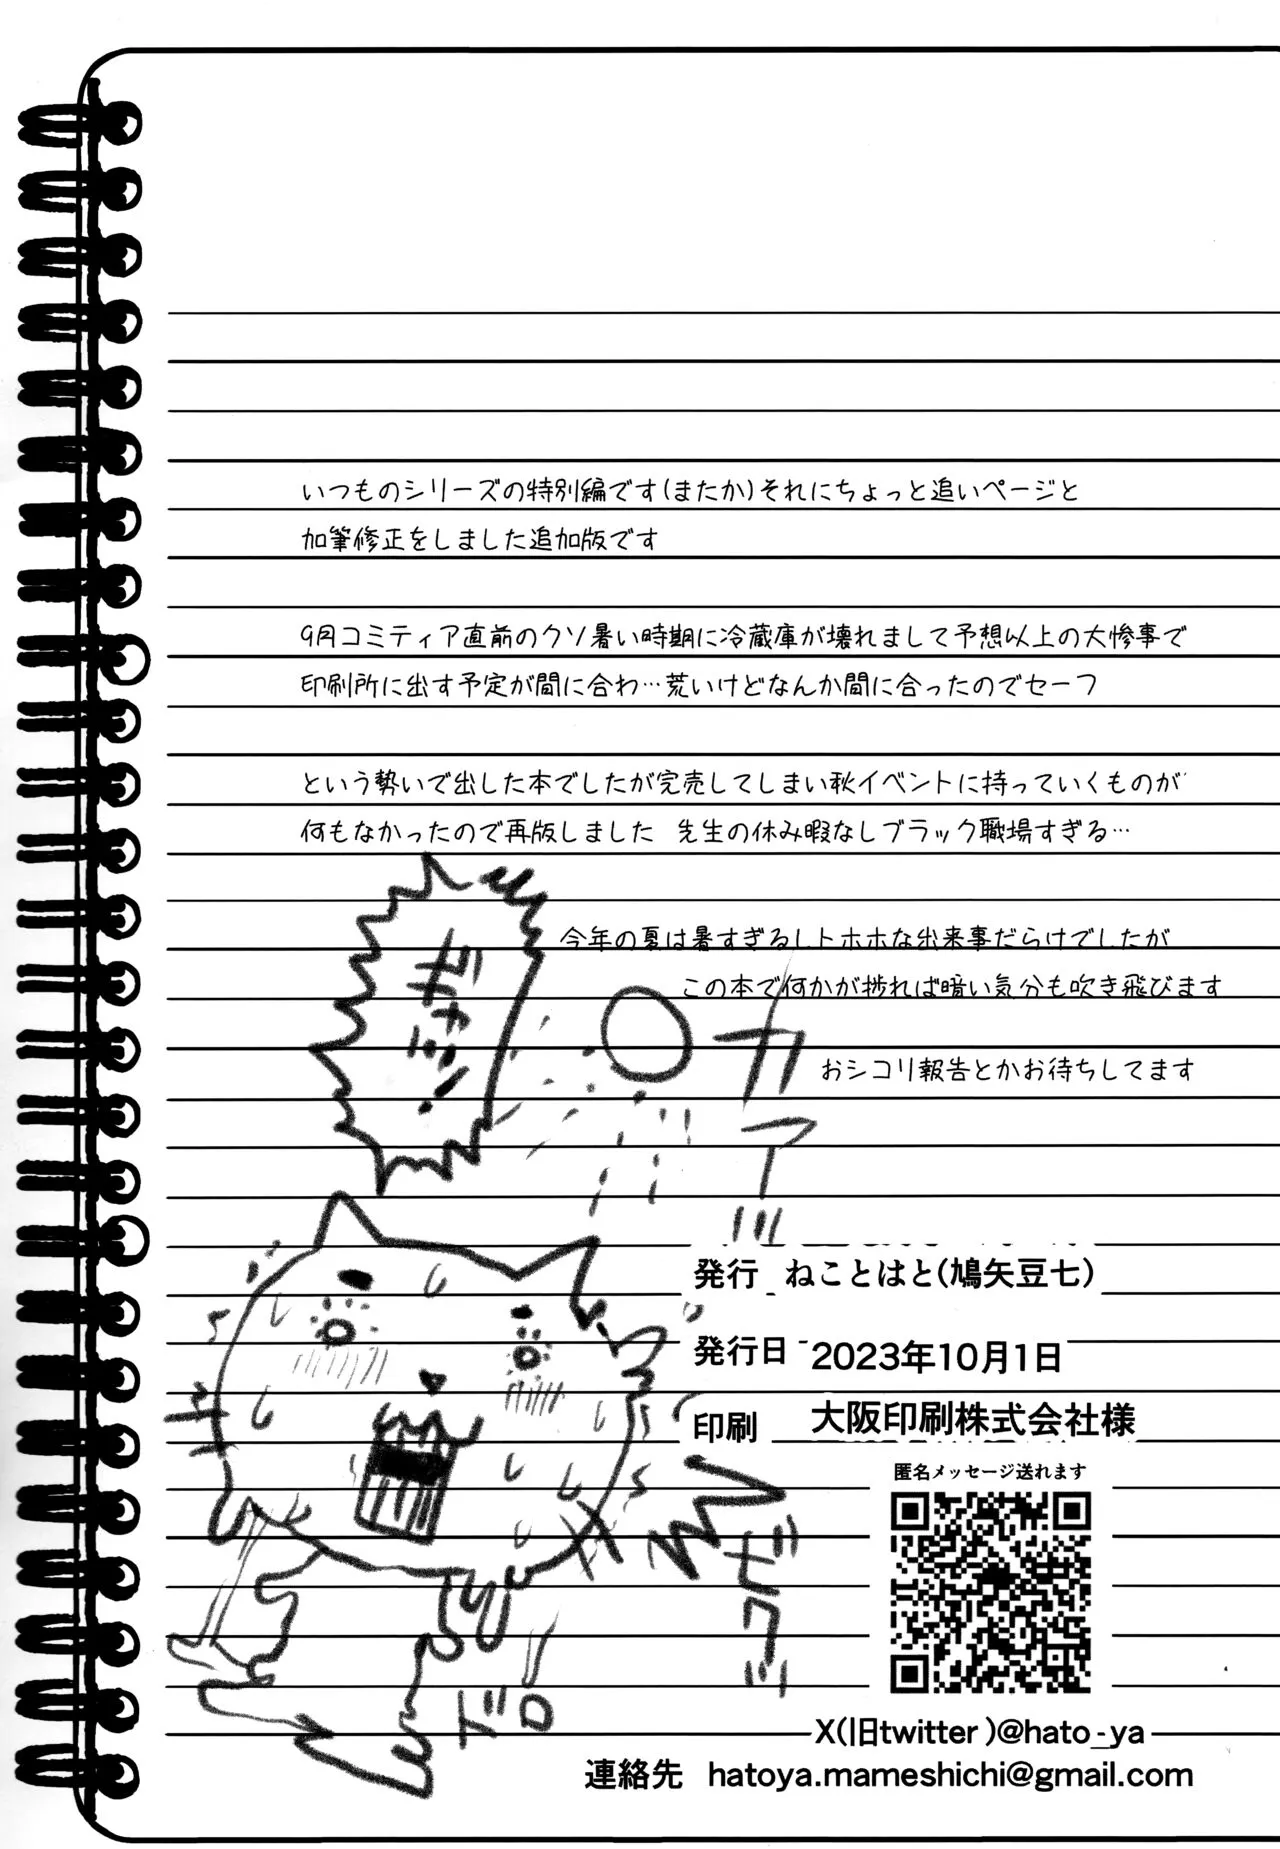 いつものシリーズの特別編です(またか)それにちょっと追いページと
加筆修正をしました追加版です
9月コミティア直前のクソ暑い時期に冷蔵庫が壊れまして予想以上の大惨事で
印刷所に出す予定が間に合わ…荒いけどなんか間に合ったのでセーフ
という勢いで出した本でしたが完売してしまい秋イベントに持っていくものが
何もなかったので再版しました 先生の休み暇なしブラック職場すぎる…
今年の夏は暑すぎるしトホホな出来事だらけでしたが
この本で何かが捗れば暗い気分も吹き飛びます
おシコリ報告とかお待ちしてます
カアッ
発行 ねことはと(鳩矢豆七)
発行日 2023年10月1日
印刷 大阪印刷株式会社様
匿名メッセージ送れます
ドロ
X(旧twitter)@hato_ya
連絡先 hatoya.mameshichi@gmail.com